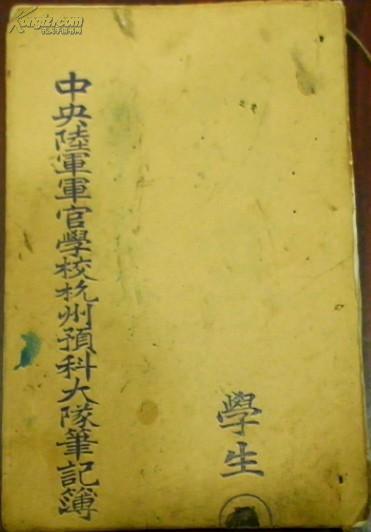 Kongfz.com
孔夫子旧书网
中央陸軍軍官學校杭州預科大隊筆記簿
學生